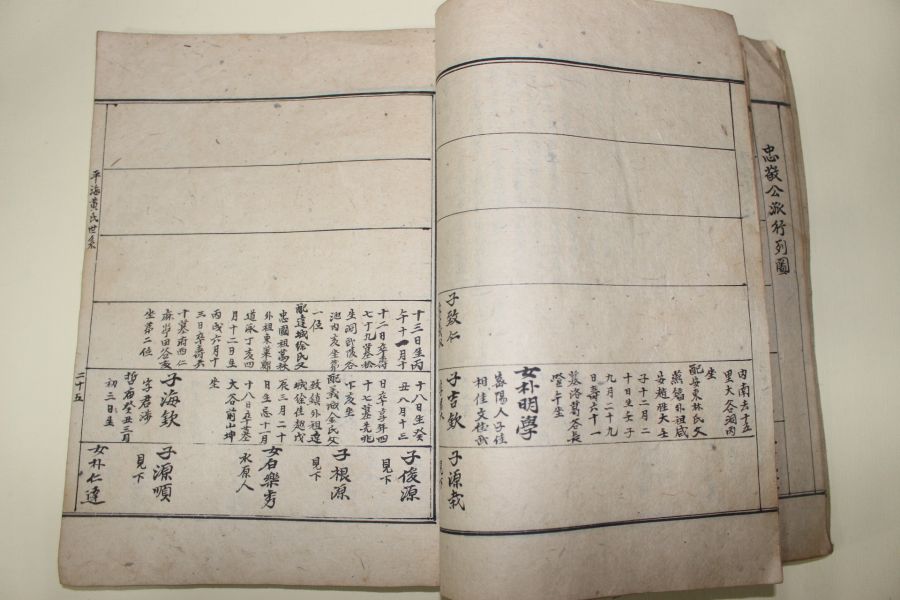 忠敬公派行列圖
子致仁
由南去十五
里大谷洞內
坐
配安東林氏父
燕錫外祖咸
安趙性大壬
子十二月二
十日生壬子
九月二十九
日壽六十一
墓洛葛谷長
登子坐
女朴明學
密陽人子佳
相佳文極武
子吉欽
子源哉
見下
十三日生丙
午十一月十
二日卒壽
七十九墓松
坐洞卽後谷
池內亥坐第
一位
配達城徐氏父
忠國祖萬秋
外祖東萊鄭
道永丁亥四
月十二日生
丙戌六月十
三日卒壽六
十墓前西仁
麻峯田谷亥
坐第二位
十八日生癸
丑八月十三
日卒享年四
十七墓先兆
下亥坐
配義城金氏父
致鎭外祖達
城徐佳趙戊
辰三月二十
日生忌十一月
十八日卒墓
大谷前山坤
坐
子海欽
字君海
哲宙癸丑三月
初三日生
子俊源
見下
子根源
見下
女石樂秀
水原人
子源順
見下
女朴仁達
平海黃氏世系
二十五